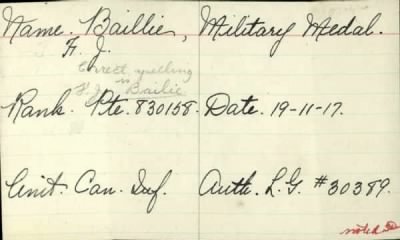 Name. Baillie, Military Medal.
F. J.
Correct spelling
is Bailie
Rank. Pte. 830158. Date. 19-11-17.
Unit. Can. Inf. Auth. L.G. #30389.
noted